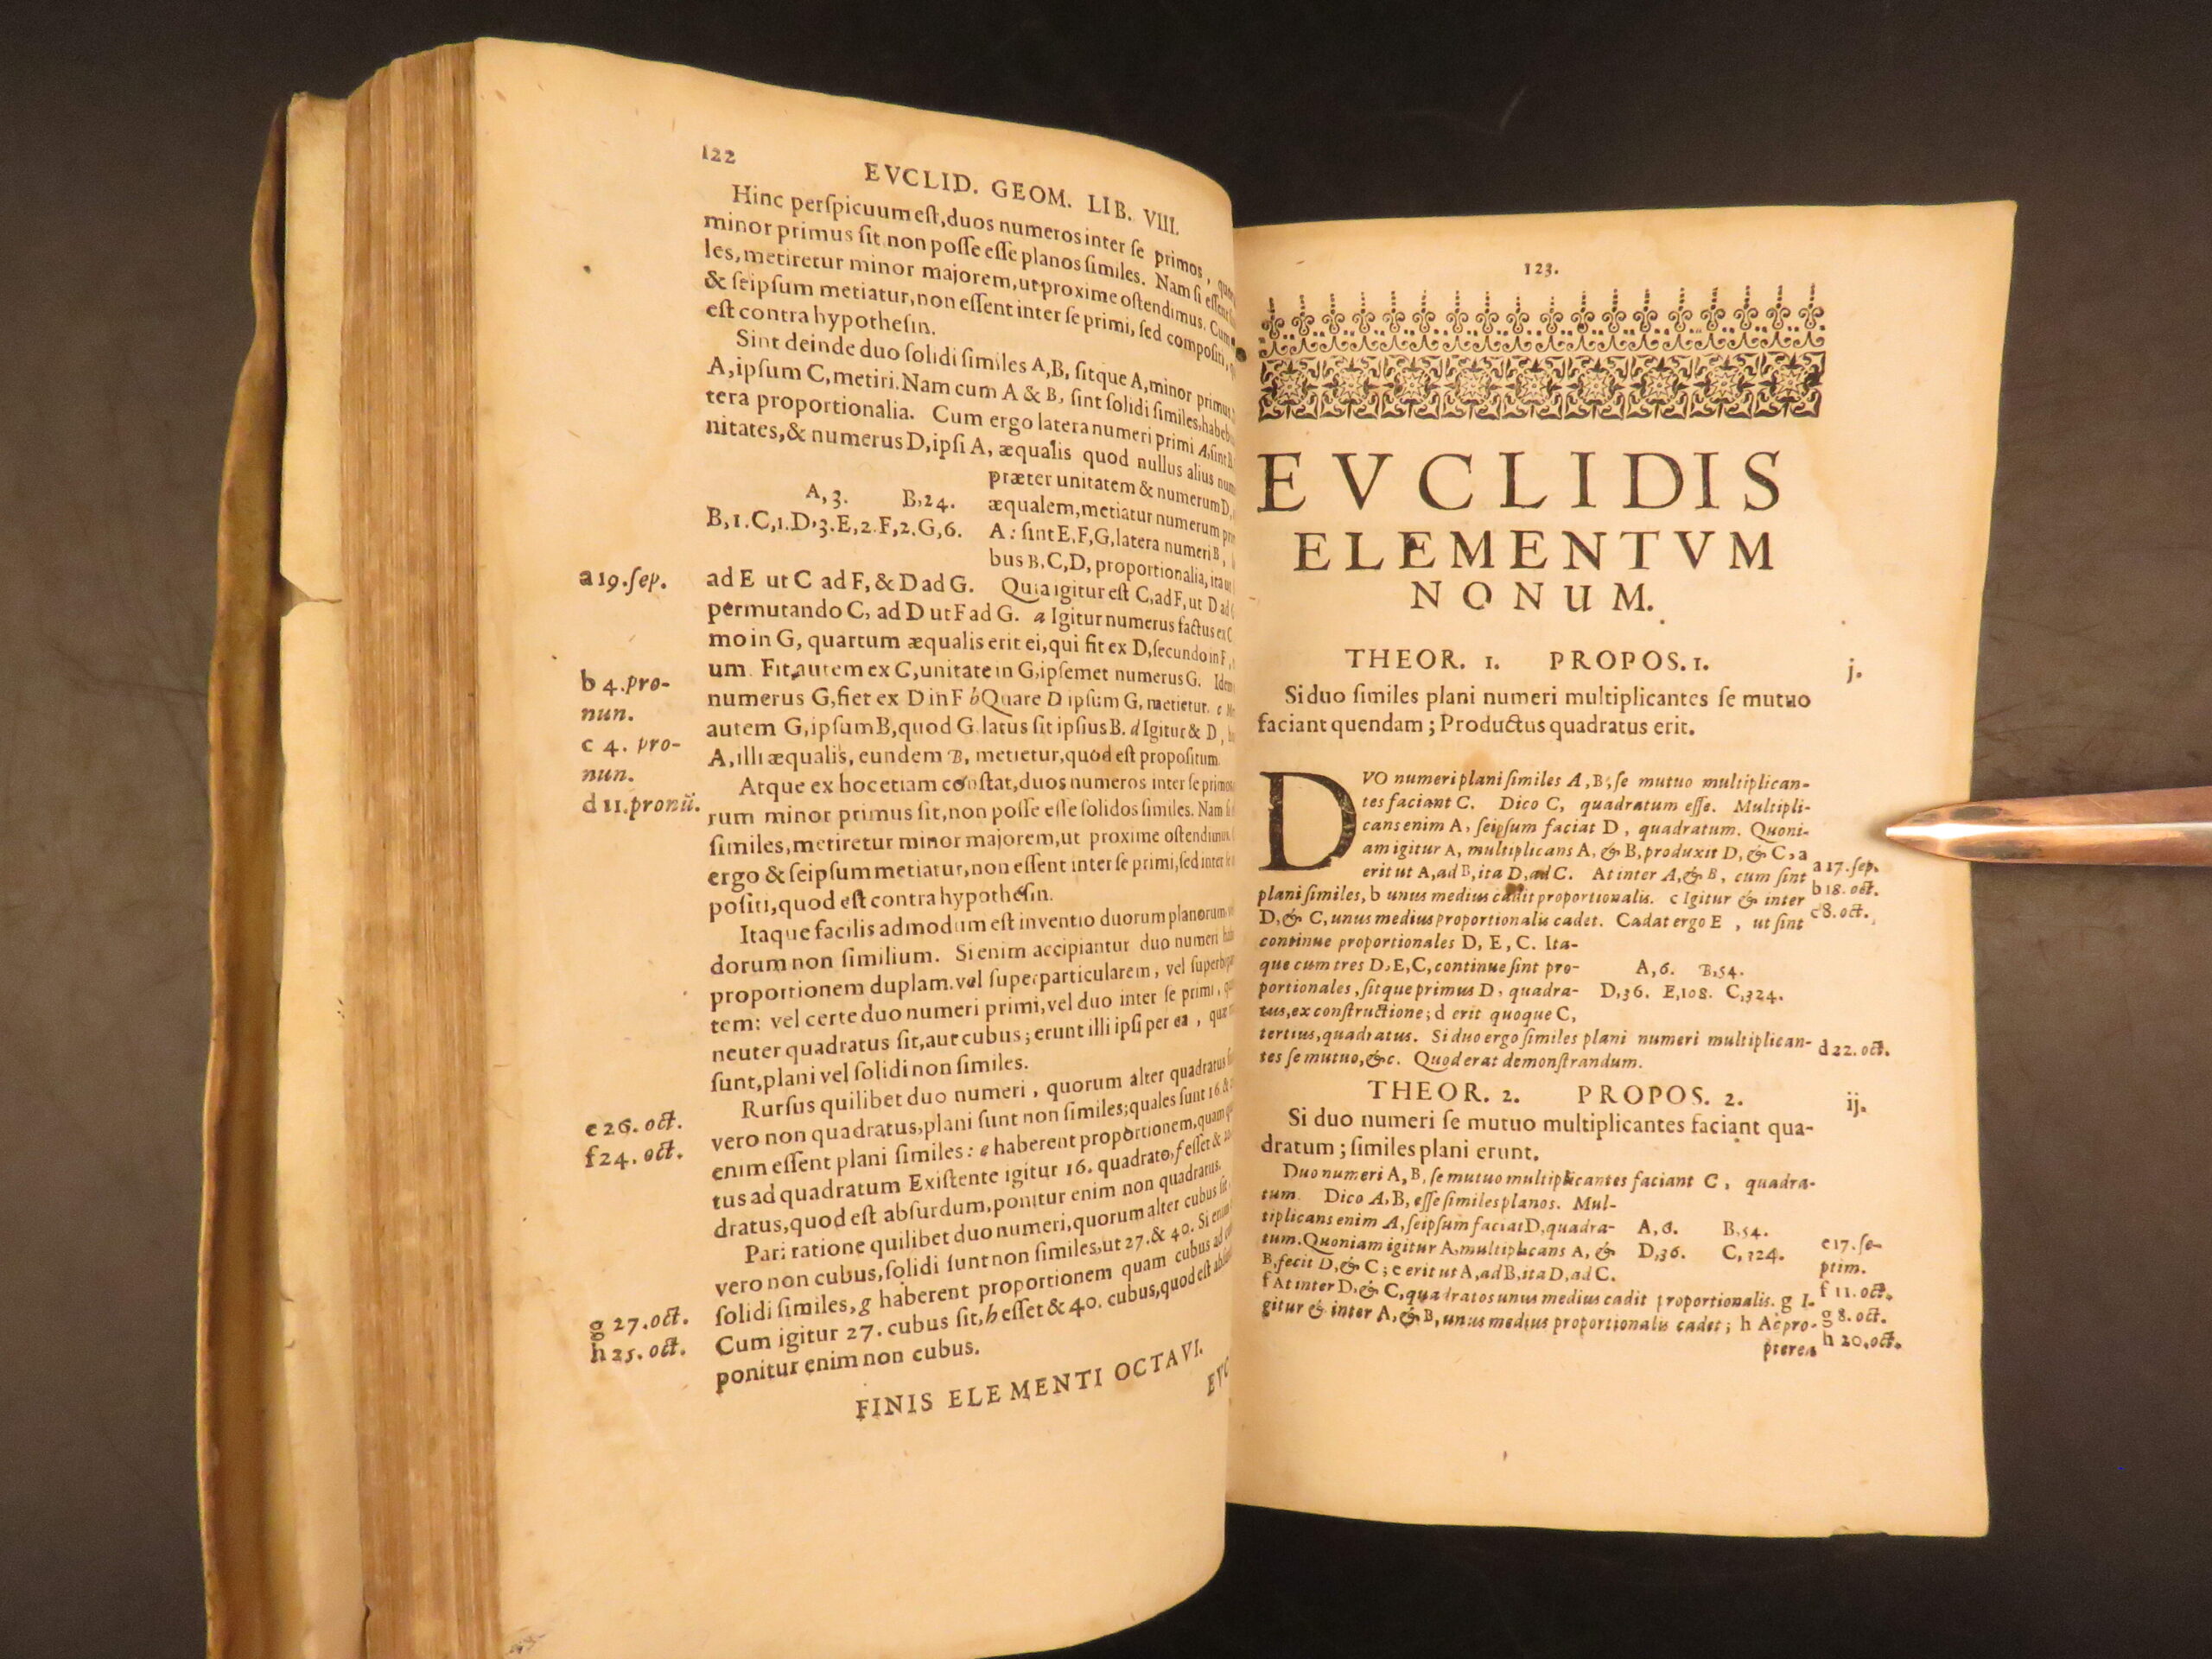 122
EVCLID. GEOM. LIB. VIII.
Hinc perſpicuum eſt, duos numeros inter ſe primos,
minor primus ſit non poſſe eſſe planos ſimiles. Nam ſi eſſent
les, metiretur minor majorem, ut proxime oſtendimus. Cum
& ſeipſum metiatur, non eſſent inter ſe primi, ſed compoſiti,
eſt contra hypotheſin.
Sint deinde duo ſolidi ſimiles A,B, ſitque A, minor primus
A, ipſum C, metiri. Nam cum A & B, ſint ſolidi ſimiles, habeb
tera proportionalia. Cum ergo latera numeri primi A, ſint
nitates, & numerus D, ipſi A, æqualis quod nullus alius num
præter unitatem & numerum D,
A, 3. B, 24. æqualem, metiatur numerum
B, 1. C, 1. D, 3. E, 2. F, 2. G, 6. A: ſint E, F, G, latera numeri B,
bus B, C, D, proportionalia, ita ut
a 19. ſep. ad E ut C ad F, & D ad G. Quia igitur eſt C, ad F, ut D ad
permutando C, ad D ut F ad G. a Igitur numerus factus ex C
mo in G, quartum æqualis erit ei, qui fit ex D, ſecundo in F,
um. Fit autem ex C, unitate in G, ipſemet numerus G. Idem
b 4. pro- numerus G, fiet ex D in F b Quare D ipſum G, metietur. c
nun.
autem G, ipſum B, quod G latus ſit ipſius B. d Igitur & D,
c 4. pro- A, illi æqualis, eundem B, metietur, quod eſt propoſitum.
nun.
Atque ex hoc etiam conſtat, duos numeros inter ſe primos
d 11. pronũ. rum minor primus ſit, non poſſe eſſe ſolidos ſimiles. Nam ſi
ſimiles, metiretur minor majorem, ut proxime oſtendimus
ergo & ſeipſum metiatur, non eſſent inter ſe primi, ſed inter ſe
poſiti, quod eſt contra hypotheſin.
Itaque facilis admodum eſt inventio duorum planorum
dorum non ſimilium. Si enim accipiantur duo numeri
proportionem duplam. vel ſuperparticularem, vel
tem: vel certe duo numeri primi, vel duo inter ſe primi,
neuter quadratus ſit, aut cubus; erunt illi ipſi per ea, quæ
ſunt, plani vel ſolidi non ſimiles.
Rurſus quilibet duo numeri, quorum alter quadratus
e 26. oct. vero non quadratus, plani ſunt non ſimiles; quales ſunt 16. &
f 24. oct. enim eſſent plani ſimiles: e haberent proportionem, quam
tus ad quadratum Exiſtente igitur 16. quadrato, f eſſet &
dratus, quod eſt abſurdum, ponitur enim non quadratus.
Pari ratione quilibet duo numeri, quorum alter cubus ſit
vero non cubus, ſolidi ſunt non ſimiles, ut 27. & 40. Si enim
g 27. oct. ſolidi ſimiles, g haberent proportionem quam cubus ad
h 25. oct. Cum igitur 27. cubus ſit, h eſſet & 40. cubus, quod eſt
ponitur enim non cubus.
FINIS ELEMENTI OCTAVI.
EVC
123.
EVCLIDIS
ELEMENTVM
NONUM.
THEOR. 1. PROPOS. 1. j.
Si duo ſimiles plani numeri multiplicantes ſe mutuo
faciant quendam; Productus quadratus erit.
DVO numeri plani ſimiles A, B, ſe mutuo multiplican-
tes faciant C. Dico C, quadratum eſſe. Multipli-
cans enim A, ſeipſum faciat D, quadratum. Quoni-
am igitur A, multiplicans A, & B, produxit D, & C, a
erit ut A, ad B, ita D, ad C. At inter A, & B, cum ſint a 17. ſep.
plani ſimiles, b unus medius cadit proportionalis. c Igitur & inter b 18. oct.
D, & C, unus medius proportionalis cadet. Cadat ergo E, ut ſint c 8. oct.
continue proportionales D, E, C. Ita-
que cum tres D, E, C, continue ſint pro- A, 6. B, 54.
portionales, ſitque primus D, quadra- D, 36. E, 108. C, 324.
tus, ex conſtructione; d erit quoque C,
tertius, quadratus. Si duo ergo ſimiles plani numeri multiplican- d 22. oct.
tes ſe mutuo, &c. Quod erat demonſtrandum.
THEOR. 2. PROPOS. 2. ij.
Si duo numeri ſe mutuo multiplicantes faciant qua-
dratum; ſimiles plani erunt.
Duo numeri A, B, ſe mutuo multiplicantes faciant C, quadra-
tum. Dico A, B, eſſe ſimiles planos. Mul-
tiplicans enim A, ſeipſum faciat D, quadra- A, 6. B, 54.
tum. Quoniam igitur A, multiplicans A, & D, 36. C, 324. e 17. ſe-
B, fecit D, & C; e erit ut A, ad B, ita D, ad C. ptim.
f At inter D, & C, quadratos unus medius cadit proportionalis. g I- f 11. oct.
gitur & inter A, & B, unus medius proportionalis cadet; h Ac pro- g 8. oct.
pterea h 20. oct.